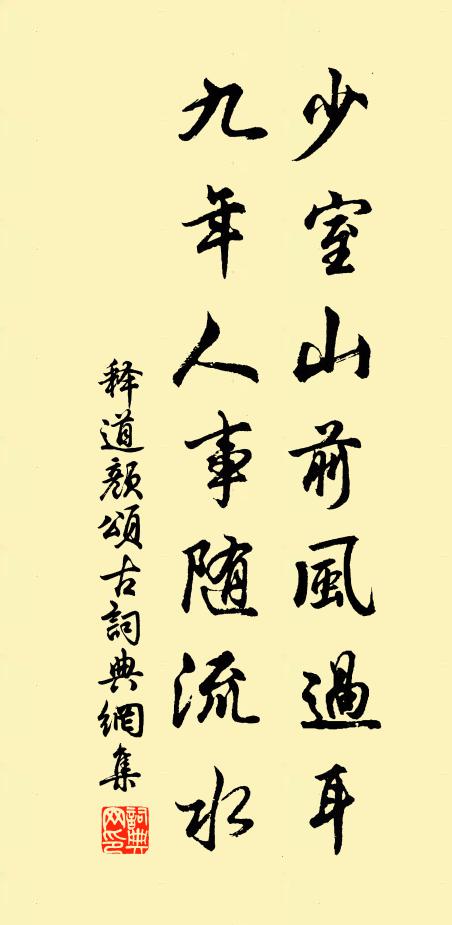 少室山前風過耳
九年人事随流水
释道颜頌古詞典網集
詞典网印